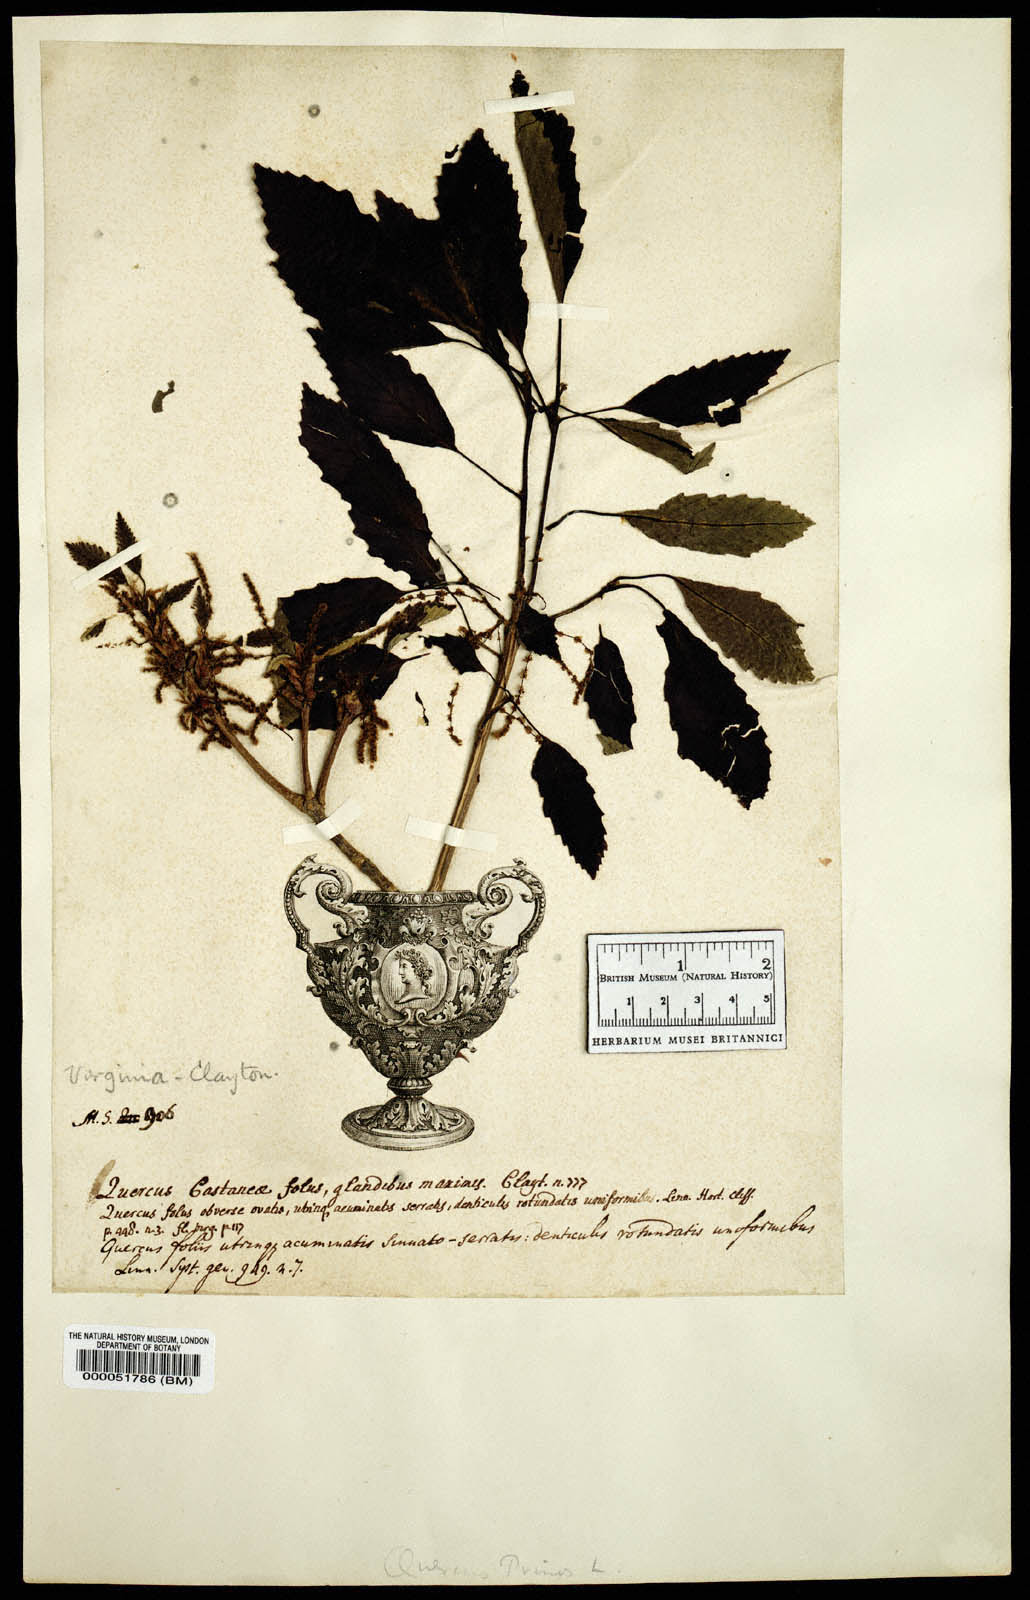 1 2
BRITISH MUSEUM (NATURAL HISTORY)
1 2 3 4 5
HERBARIUM MUSEI BRITANNICI
Virginia - Clayton.
M. S. 906
Quercus Castaneæ foliis, glandibus maximis. Clayt. n. 777
Quercus foliis obverse ovatis, utinq acuminatis serratis, denticulis rotundatis uniformibus. Linn. Hort. Cliff.
p. 448. n. 3. fl. virg. p. 117
Quercus foliis utrinqꝫ acuminatis sinuato-serratis: denticulis rotundatis uniformibus
Linn. Syst. gen. 949. n. 7.
THE NATURAL HISTORY MUSEUM, LONDON
DEPARTMENT OF BOTANY
000051786 (BM)
Quercus Prinus L.